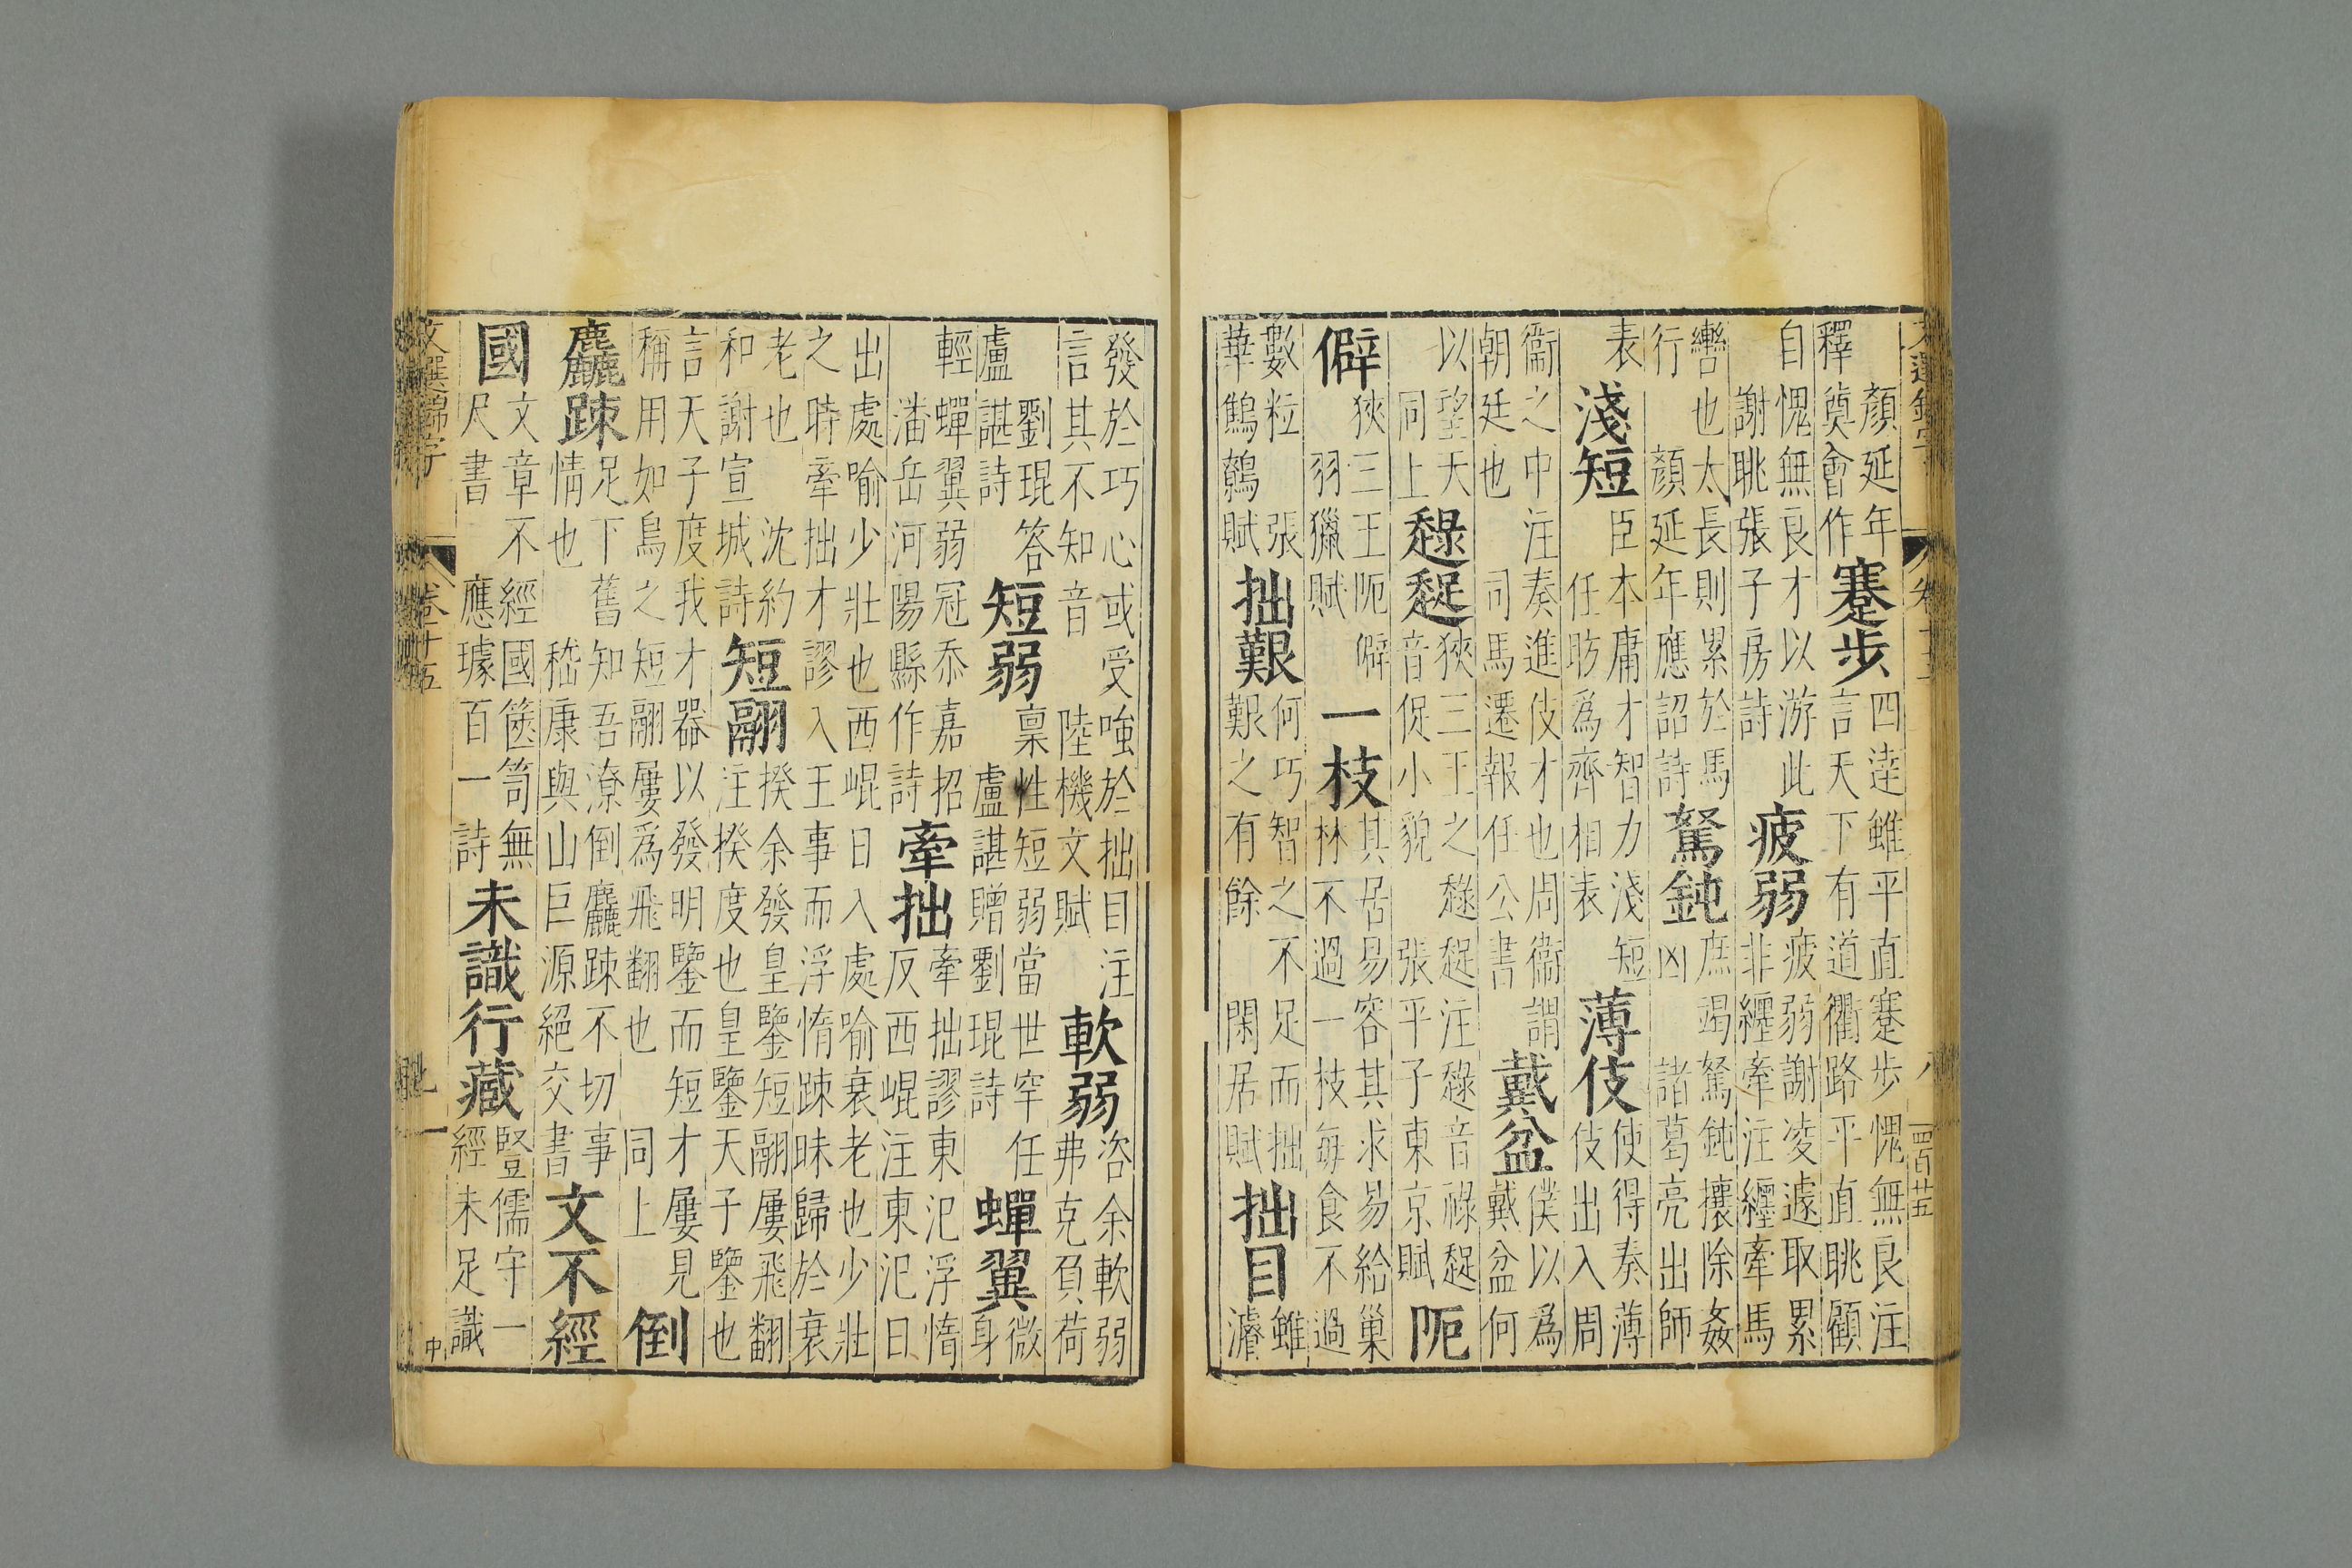 顏延年釋奠會作蹇步四達雖平直蹇步愧無良注言天下有道衢路平直眺顧
自愧無良才以游此謝眺張子房詩疲弱疲弱謝凌遽取累非纏牽注纏牽馬
轡也太長則累於馬行顏延年應詔詩駑鈍庶竭駑鈍攘除姦凶諸葛亮出師
表淺短臣本庸才智力淺短任昉爲齊相表薄伎使得奏薄伎出入周
衞之中注奏進伎才也周衞謂朝廷也司馬遷報任公書戴盆僕以爲戴盆何
以望天同上趢䞤狹三王之趢䞤注趢音祿䞤音促小貌張平子東京賦阨
僻狹三王阨僻羽獵賦一枝其居易容其求易給巢林不過一枝每食不過
數粒張華鷦鷯賦拙艱何巧智之不足而拙艱之有餘閑居賦拙目雖濬
發於巧心或受嗤於拙目注言其不知音陸機文賦軟弱咨余軟弱弗克負荷
劉琨答盧諶詩短弱禀性短弱當世罕任盧諶贈劉琨詩蟬翼微身
輕蟬翼弱冠忝嘉招潘岳河陽縣作詩牽拙牽拙謬東汜浮惰反西崐注東汜日
出處喻少壯也西崐日入處喻衰老也少壯之時牽拙才謬入王事而浮惰踈昧歸於衰
老也沈約和謝宣城詩短翮揆余發皇鑒短翮屢飛翻注揆度也皇鑒天子鑒也
言天子度我才器以發明鑒而短才屢見稱用如鳥之短翮屢爲飛翻也同上倒
麤踈足下舊知吾潦倒麤踈不切事情也嵇康與山巨源絕交書文不經
國文章不經國篋笥無尺書應璩百一詩未識行藏豎儒守一經未足識
卷十五